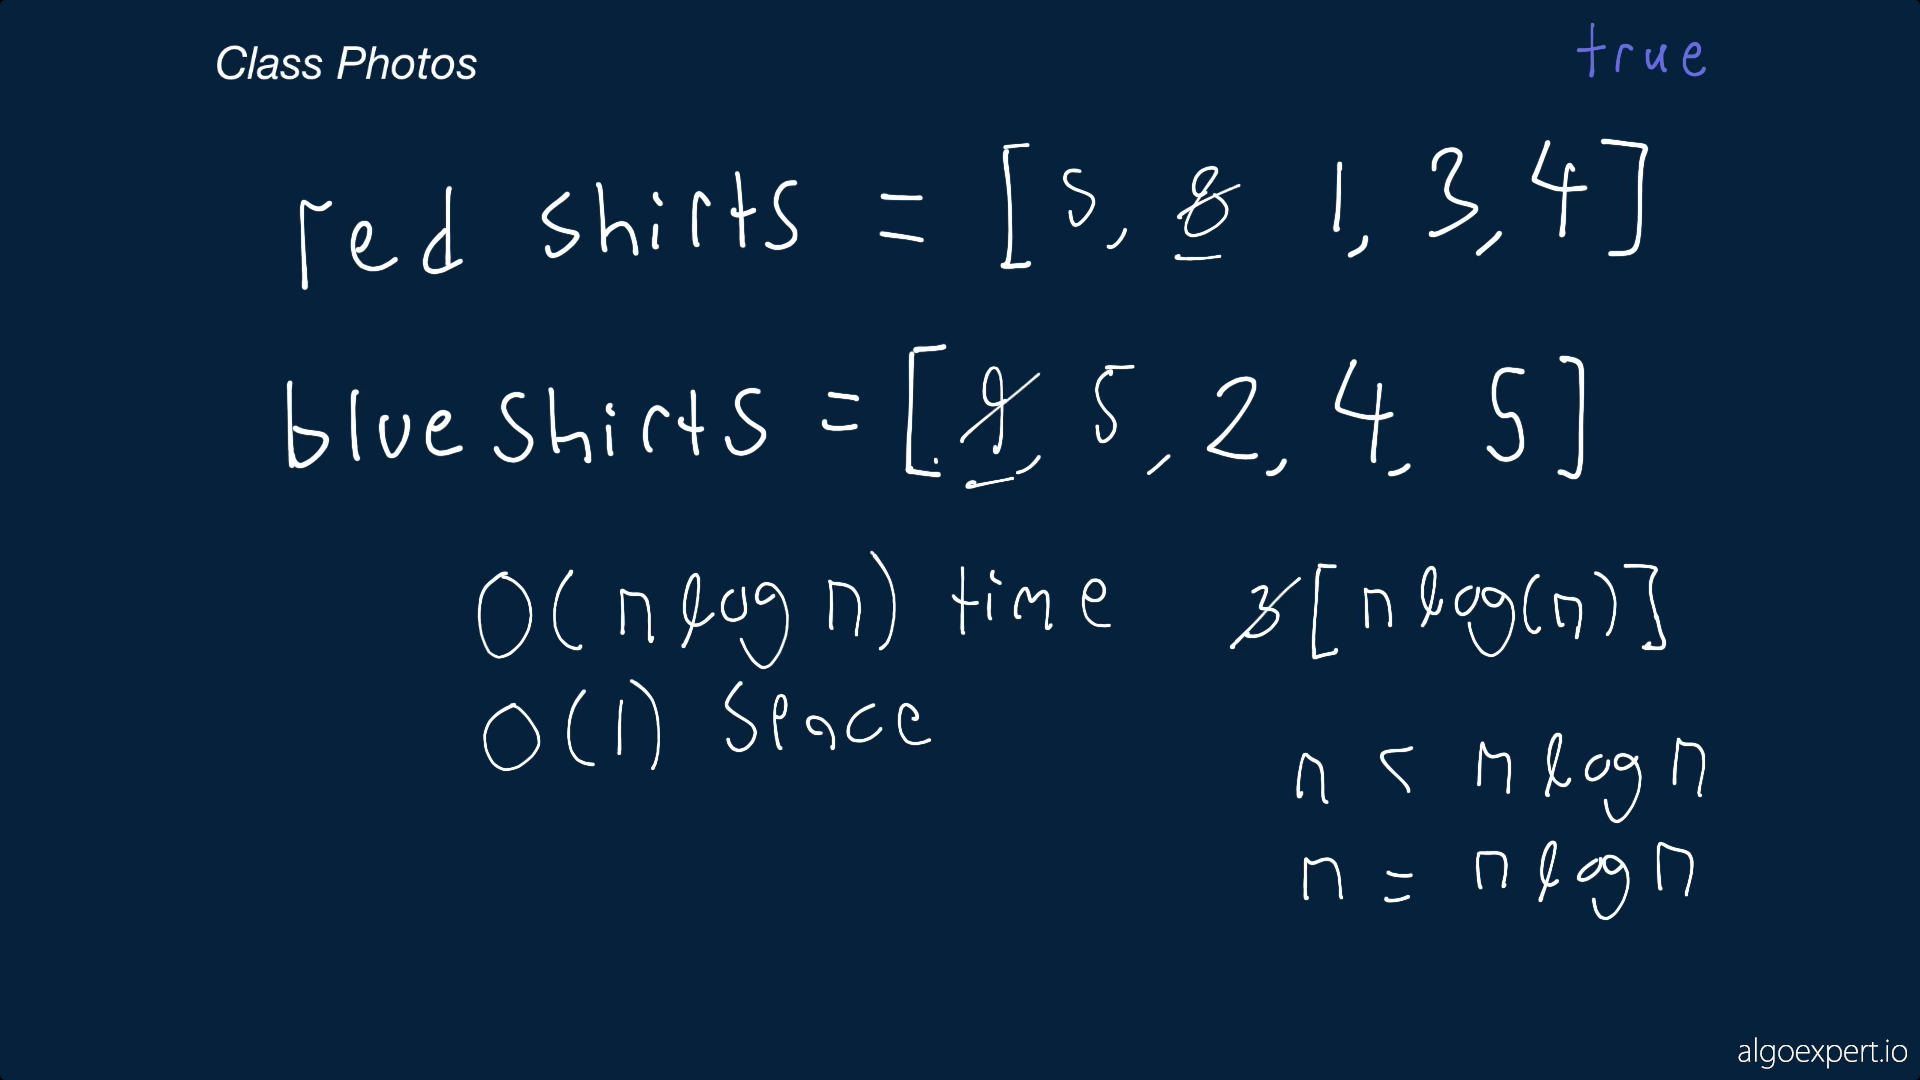 Class Photos
true
red shirts = [5, 8 1, 3, 4]
blue shirts = [9, 5, 2, 4, 5]
O(n log n) time 3[n log(n)]
O(1) space
n < n log n
n = n log n
algoexpert.io